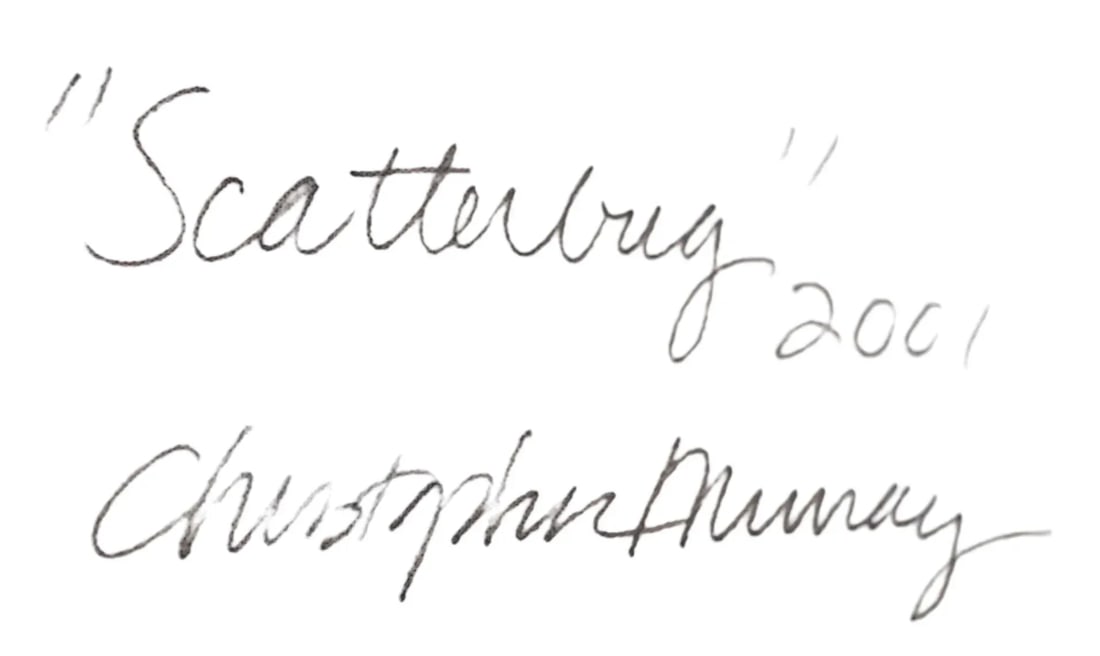 "Scatterbug" 2001
Christopher Murray